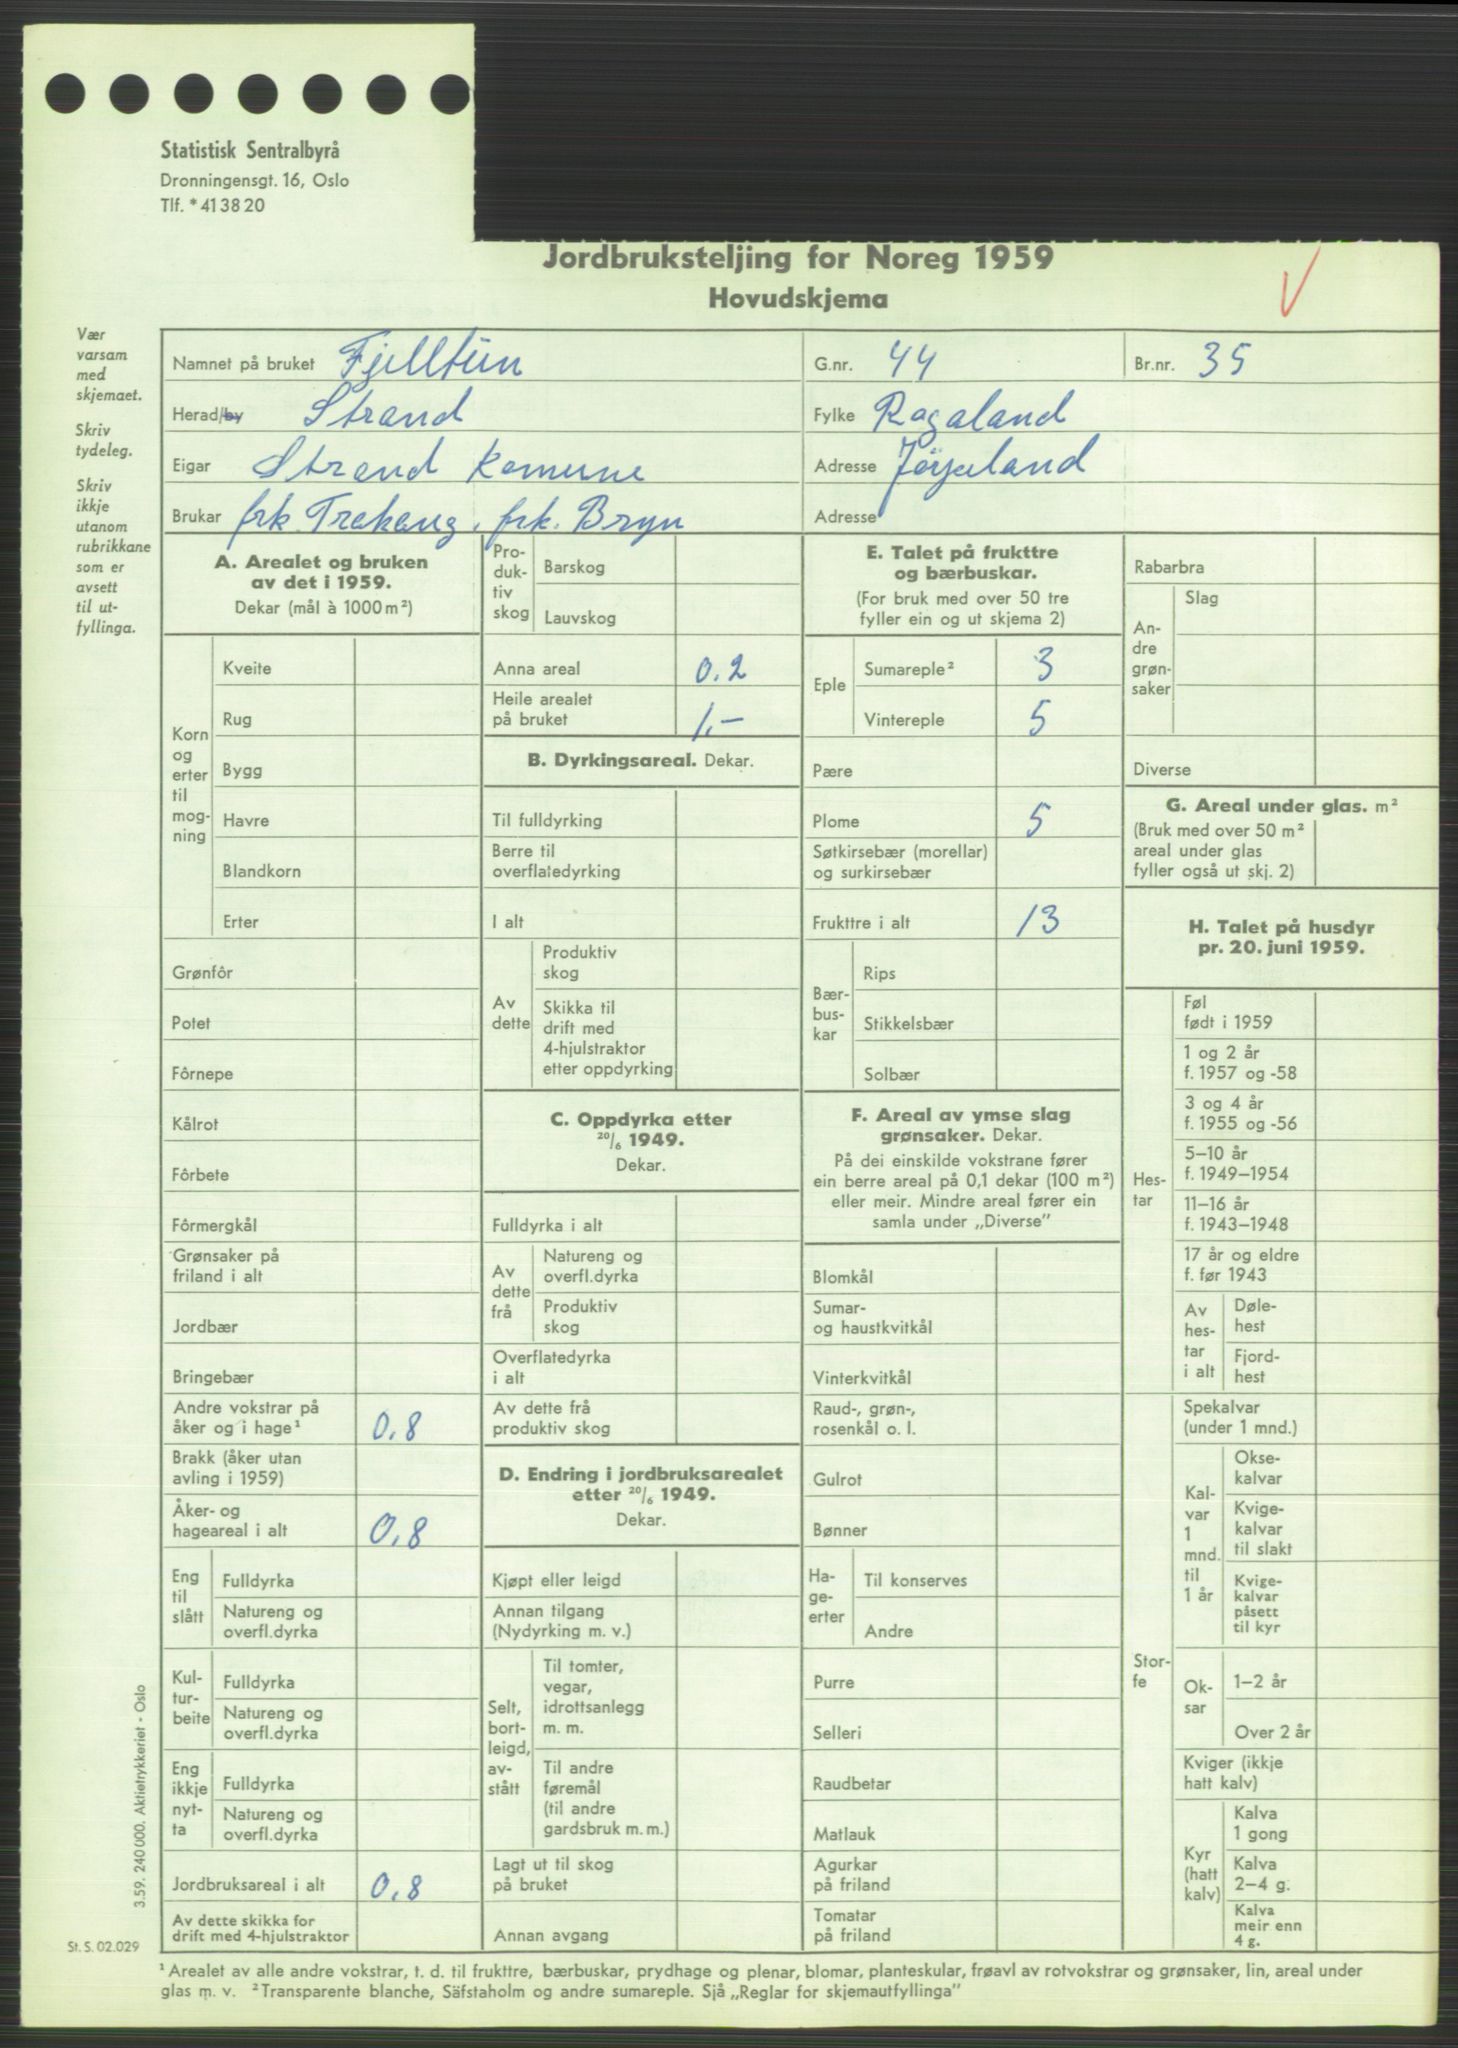 Statistisk Sentralbyrå
Dronningensgt. 16, Oslo
Tlf. * 41 38 20
Jordbruksteljing for Noreg 1959
Hovudskjema
Vær
varsam
med
skjemaet.
Skriv
tydeleg.
Skriv
ikkje
utanom
rubrikkane
som er
avsett
til ut-
fyllinga.
Namnet på bruket Fjelltun
G.nr. 44
Br.nr. 35
Herad/by Strand
Fylke Rogaland
Eigar Strand komune
Adresse Jörpeland
Brukar frk. Trekang, frk. Bryn
Adresse
A. Arealet og bruken
av det i 1959.
Dekar (mål à 1000 m²)
Korn
og
erter
til
mog-
ning
Kveite
Rug
Bygg
Havre
Blandkorn
Erter
Grønfôr
Potet
Fôrnepe
Kålrot
Fôrbete
Fôrmergkål
Grønsaker på
friland i alt
Jordbær
Bringebær
Andre vokstrar på
åker og i hage¹ 0,8
Brakk (åker utan
avling i 1959)
Åker- og
hageareal i alt 0,8
Eng
til
slått
Fulldyrka
Natureng og
overfl.dyrka
Kul-
tur-
beite
Fulldyrka
Natureng og
overfl.dyrka
Eng
ikkje
nyt-
ta
Fulldyrka
Natureng og
overfl.dyrka
Jordbruksareal i alt 0,8
Av dette skikka for
drift med 4-hjulstraktor
Pro-
duk-
tiv
skog
Barskog
Lauvskog
Anna areal 0,2
Heile arealet
på bruket 1,-
B. Dyrkingsareal. Dekar.
Til fulldyrking
Berre til
overflatedyrking
I alt
Av
dette
Produktiv
skog
Skikka til
drift med
4-hjulstraktor
etter oppdyrking
C. Oppdyrka etter
20/6 1949.
Dekar.
Fulldyrka i alt
Av
dette
frå
Natureng og
overfl.dyrka
Produktiv
skog
Overflatedyrka
i alt
Av dette frå
produktiv skog
D. Endring i jordbruksarealet
etter 20/6 1949.
Dekar.
Kjøpt eller leigd
Annan tilgang
(Nydyrking m. v.)
Selt,
bort-
leigd,
av-
stått
Til tomter,
vegar,
idrottsanlegg
m. m.
Til andre
føremål
(til andre
gardsbruk m. m.)
Lagt ut til skog
på bruket
Annan avgang
E. Talet på frukttre
og bærbuskar.
(For bruk med over 50 tre
fyller ein og ut skjema 2)
Eple
Sumareple² 3
Vintereple 5
Pære
Plome 5
Søtkirsebær (morellar)
og surkirsebær
Frukttre i alt 13
Bær-
bus-
kar
Rips
Stikkelsbær
Solbær
F. Areal av ymse slag
grønsaker. Dekar.
På dei einskilde vokstrane fører
ein berre areal på 0,1 dekar (100 m²)
eller meir. Mindre areal fører ein
samla under „Diverse”
Blomkål
Sumar-
og haustkvitkål
Vinterkvitkål
Raud-, grøn-,
rosenkål o. l.
Gulrot
Bønner
Ha-
ge-
erter
Til konserves
Andre
Purre
Selleri
Raudbetar
Matlauk
Agurkar
på friland
Tomatar
på friland
Rabarbra
An-
dre
grøn-
saker
Slag
Diverse
G. Areal under glas. m²
(Bruk med over 50 m²
areal under glas
fyller også ut skj. 2)
H. Talet på husdyr
pr. 20. juni 1959.
Hes-
tar
Føl
født i 1959
1 og 2 år
f. 1957 og -58
3 og 4 år
f. 1955 og -56
5–10 år
f. 1949–1954
11–16 år
f. 1943–1948
17 år og eldre
f. før 1943
Av
hes-
tar
i alt
Døle-
hest
Fjord-
hest
Stor-
fe
Spekalvar
(under 1 mnd.)
Kal-
var
1
mnd.
til
1 år
Okse-
kalvar
Kvige-
kalvar
til slakt
Kvige-
kalvar
påsett
til kyr
Ok-
sar
1–2 år
Over 2 år
Kviger (ikkje
hatt kalv)
Kyr
(hatt
kalv)
Kalva
1 gong
Kalva
2–4 g.
Kalva
meir enn
4 g.
3.59. 240 000. Aktietrykkeriet - Oslo
St. S. 02.029
¹ Arealet av alle andre vokstrar, t. d. til frukttre, bærbuskar, prydhage og plenar, blomar, planteskular, frøavl av rotvokstrar og grønsaker, lin, areal under
glas m. v. ² Transparente blanche, Säfstaholm og andre sumareple. Sjå „Reglar for skjemautfyllinga”